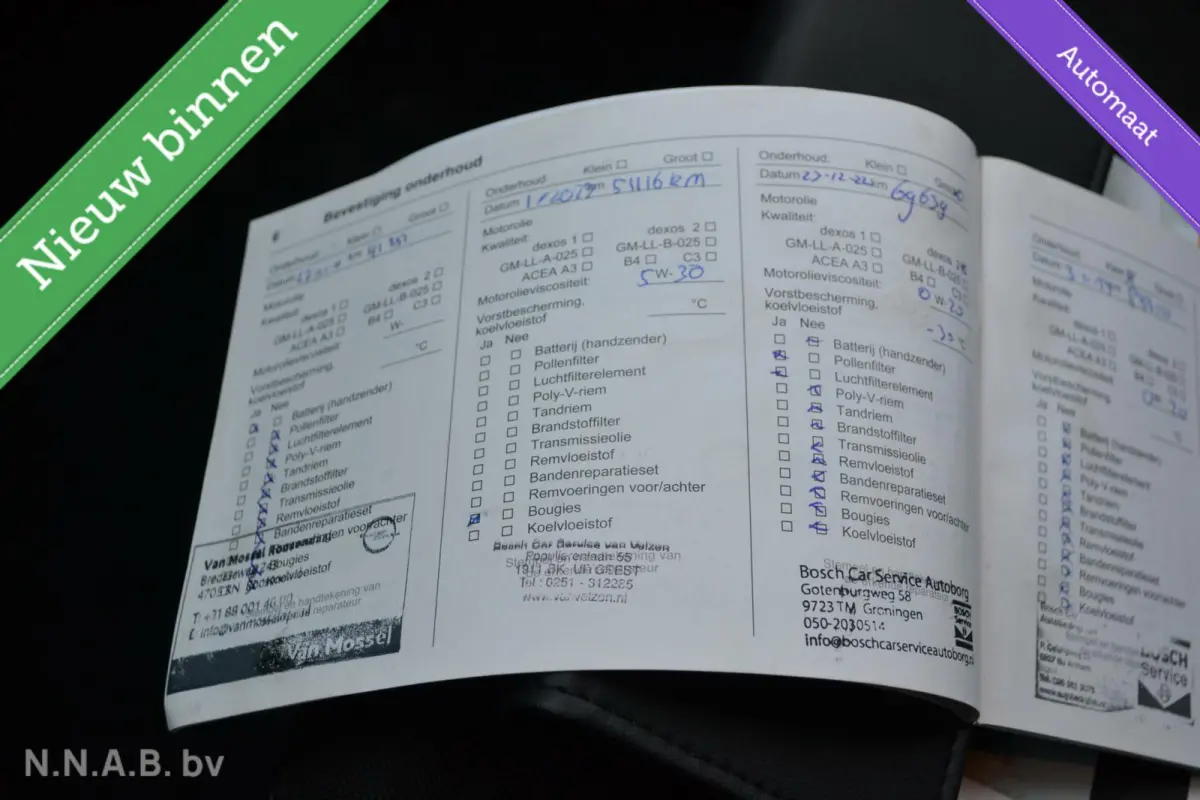 Nieuw binnen
Automaat
6
Bevestiging onderhoud
Onderhoud: Klein Groot
Datum km 41.357
Motorolie
Kwaliteit: dexos 1 dexos 2
GM-LL-A-025 GM-LL-B-025
ACEA A3 B4 C3
Motorolieviscositeit: W-
Vorstbescherming,
koelvloeistof °C
Ja Nee
Batterij (handzender)
Pollenfilter
Luchtfilterelement
Poly-V-riem
Tandriem
Brandstoffilter
Transmissieolie
Remvloeistof
Bandenreparatieset
Remvoeringen voor/achter
Bougies
Koelvloeistof
Stempel en handtekening van
reparateur
Van Mossel Roosendaal
T: +31 88 001 46 00
Van Mossel
Onderhoud: Klein Groot
Datum km 51116 km
Motorolie
Kwaliteit: dexos 1 dexos 2
GM-LL-A-025 GM-LL-B-025
ACEA A3 B4 C3
Motorolieviscositeit: 5 W- 30
Vorstbescherming,
koelvloeistof °C
Ja Nee
Batterij (handzender)
Pollenfilter
Luchtfilterelement
Poly-V-riem
Tandriem
Brandstoffilter
Transmissieolie
Remvloeistof
Bandenreparatieset
Remvoeringen voor/achter
Bougies
Koelvloeistof
Bosch Car Service van Velzen
Populierenlaan 55
UITGEEST
Tel : 0251 - 312285
www.vanvelzen.nl
Onderhoud: Klein Groot
Datum 27-12-22 km 69639
Motorolie
Kwaliteit: dexos 1 dexos 2
GM-LL-A-025 GM-LL-B-025
ACEA A3 B4 C3
Motorolieviscositeit: 0 W- 20
Vorstbescherming,
koelvloeistof °C
Ja Nee
Batterij (handzender)
Pollenfilter
Luchtfilterelement
Poly-V-riem
Tandriem
Brandstoffilter
Transmissieolie
Remvloeistof
Bandenreparatieset
Remvoeringen voor/achter
Bougies
Koelvloeistof
Bosch Car Service Autoborg
Gotenburgweg 58
9723 TM Groningen
050-2030514
info@boschcarserviceautoborg.nl
BOSCH
Service
Onderhoud: Klein Groot
Datum
Motorolie
Kwaliteit:
dexos 1
GM-LL-A-025
ACEA A3
Motorolieviscositeit:
Vorstbescherming,
koelvloeistof
Ja Nee
Batterij (handzender)
Pollenfilter
Luchtfilterelement
Poly-V-riem
Tandriem
Brandstoffilter
Transmissieolie
Remvloeistof
Bandenreparatieset
Remvoeringen voor/achter
Bougies
Koelvloeistof
BOSCH
Service
N.N.A.B. bv